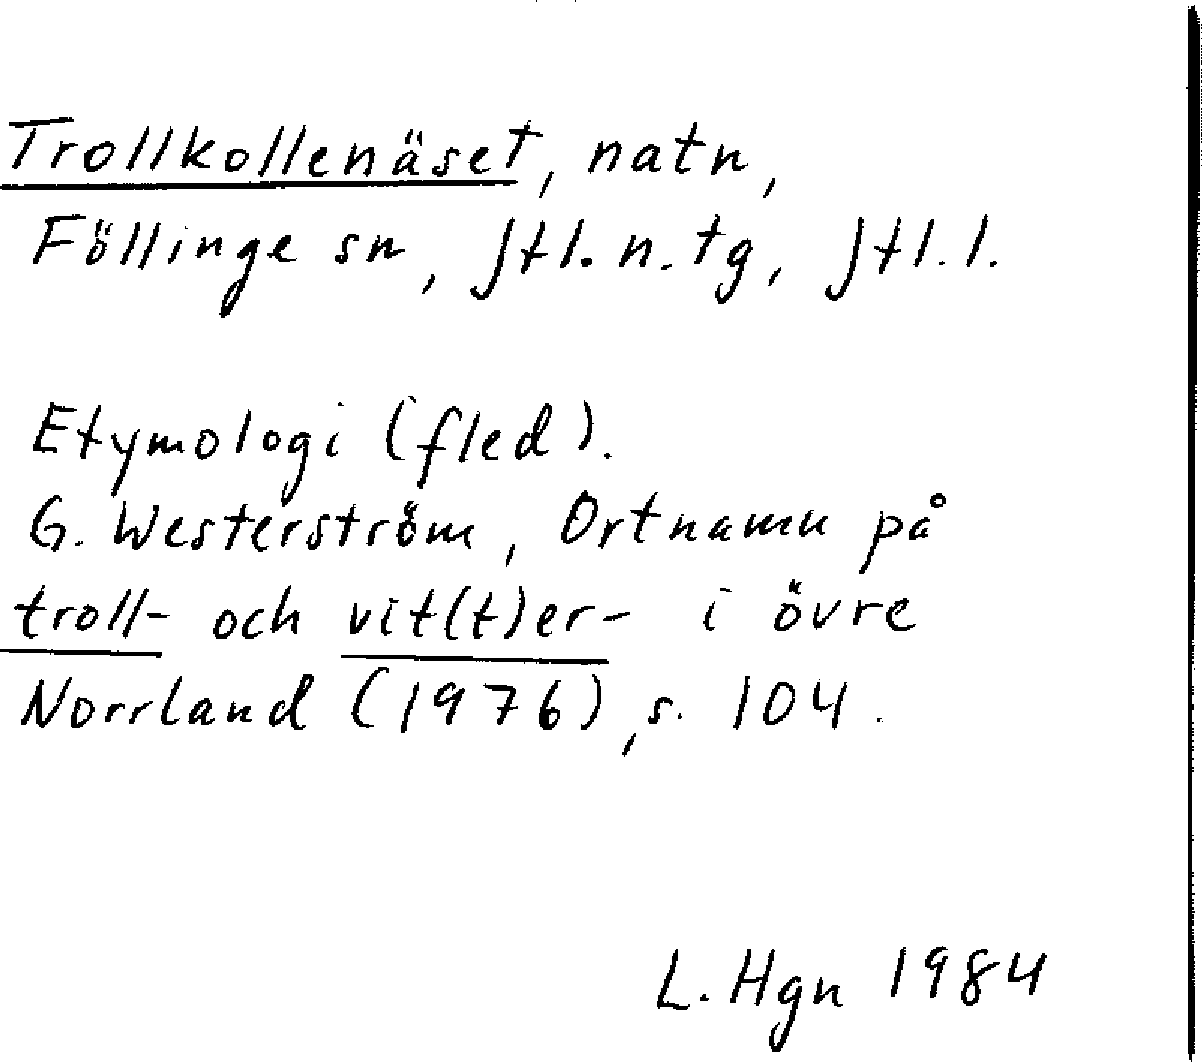 Trollkollenäset, natn,
Föllinge sn, Jtl. n. tg, Jtl. l.
Etymologi (fled).
G. Westerström, Ortnamn på
troll- och vit(t)er- i övre
Norrland (1976), s. 104.
L. Hgn 1984